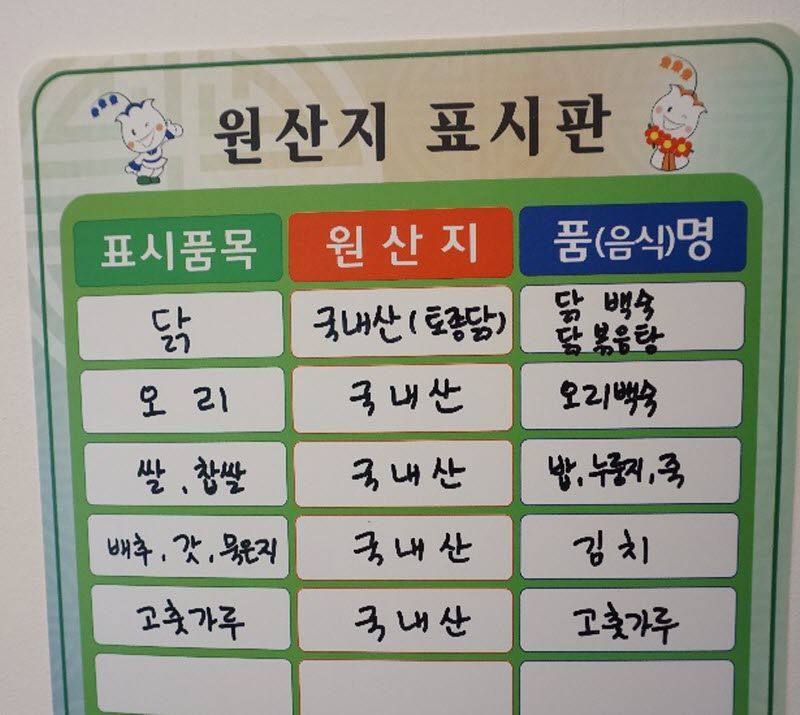 원산지 표시판
표시품목 원산지 품(음식)명
닭 국내산(토종닭) 닭 백숙
닭볶음탕
오리 국내산 오리백숙
쌀, 찹쌀 국내산 밥, 누룽지, 죽
배추, 갓, 묵은지 국내산 김치
고춧가루 국내산 고춧가루